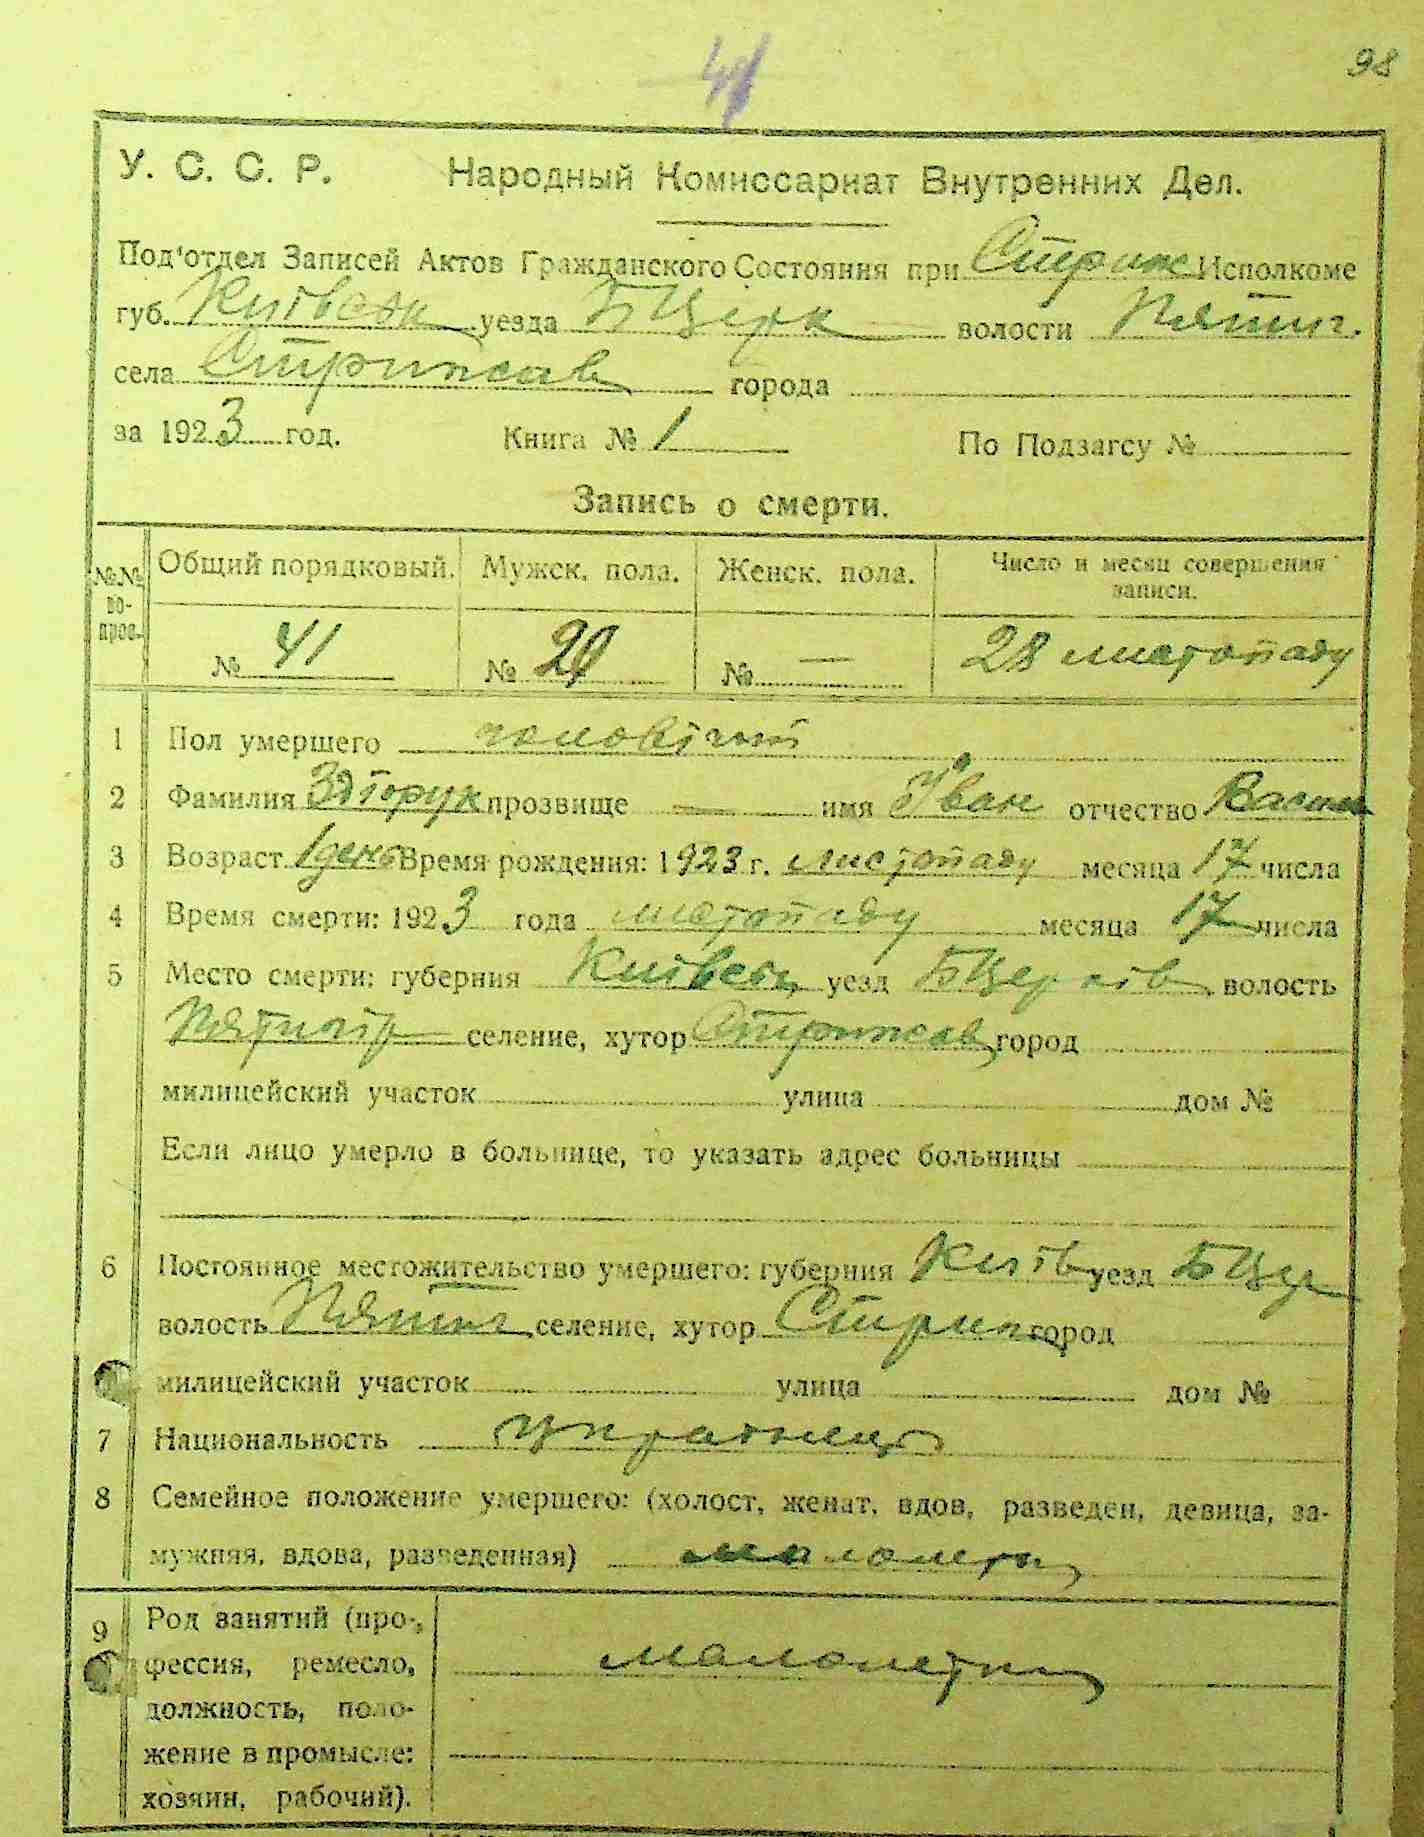 98
41
У. С. С. Р. Народный Комиссариат Внутренних Дел.
Под'отдел Записей Актов Гражданского Состояния при Стриж Исполкоме
губ. Київськ уезда БЦерк волости Пятиг.
села Стрижав города
за 1923 год. Книга № 1 По Подзагсу №
Запись о смерти.
№№ во-прос. Общий порядковый. Мужск. пола. Женск. пола. Число и месяц совершения записи.
№ 41 № № — 28 листопаду
1 Пол умершего чоловічий
2 Фамилия прозвище — имя Іван отчество Васил
3 Возраст 1 день Время рождения: 1923 г. листопаду месяца 17 числа
4 Время смерти: 1923 года листопаду месяца 17 числа
5 Место смерти: губерния Київськ уезд БЦерків волость
Пятигір селение, хутор Стрижав город
милицейский участок улица дом №
Если лицо умерло в больнице, то указать адрес больницы
6 Постоянное местожительство умершего: губерния Київ уезд БЦер
волость Пятиг селение, хутор Стриж город
милицейский участок улица дом №
7 Национальность
8 Семейное положение умершего: (холост, женат, вдов, разведен, девица, за-
мужняя, вдова, разведенная) малолетн
9 Род занятий (про-
фессия, ремесло, малолетн
должность, поло-
жение в промысле:
хозяин, рабочий).